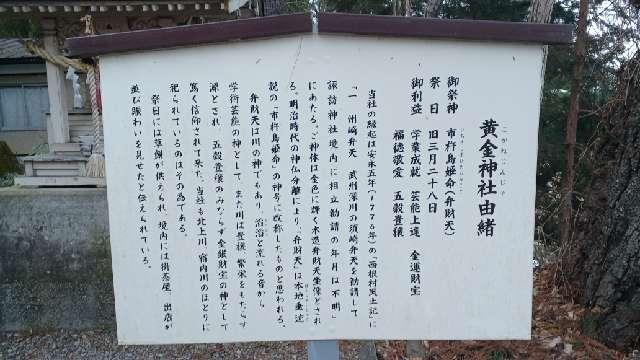 黄金神社由緒
こがねじんじゃ
御祭神 市杵島姫命(弁財天)
祭日 旧三月二十八日
御利益 学業成就 芸能上達 金運財宝
福徳敬愛 五穀豊穣
当社の縁起は安永五年(1776年)の「西根村風土記」に
「一 州崎弁天 武州深川の須崎弁天を勧請して
諏訪神社境内に相立勧請の年月は不明」
にあたる。ご神体は金色に輝く木造弁財天坐像とされ
る。明治時代の神仏分離により、「弁財天」は本地垂迹
説の「市杵島姫命」の神号に改称したものと思われる。
弁財天は川の神でもあり、滔滔と流れる音から
学術芸能の神として、また川は豊穣、繁栄をもたらす
源とされ、五穀豊穣のみならず金銀財宝の神として
篤く信仰されて来た。当社も北上川、宿内川のほとりに
祀られているのはその為である。
祭日には草餅が供えられ、境内には掛茶屋、出店が
並び賑わいを見せたと伝えられている。